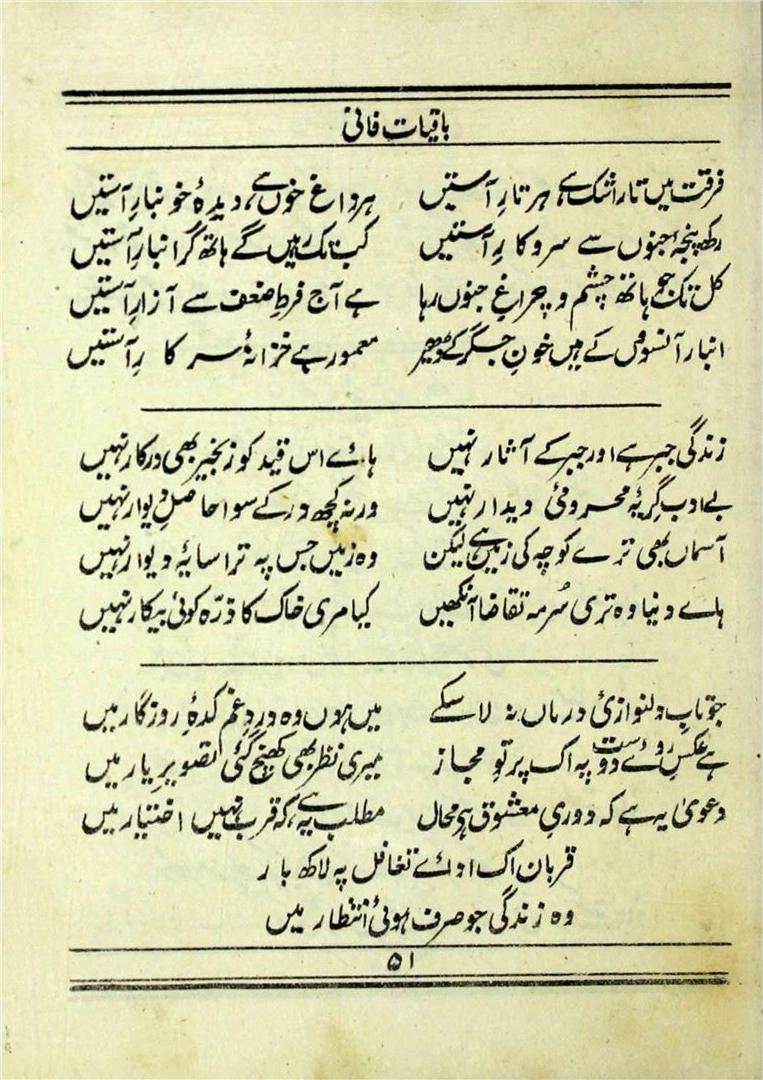 باقیات فانی
فرقت میں تار اشک ہے ہر تارِ آستیں ہر داغ خوں ہے، دیدۂ خونبارِ آستیں
رکھ پنجۂ جنوں سے سروکارِ آستیں کب تک رہیں گے ہاتھ گرانبارِ آستیں
کل تک جو ہاتھ چشم و چراغِ جنوں رہا ہے آج فرطِ ضعف سے آزارِ آستیں
انبار آنسوؤں کے ہیں خونِ جگر کے ڈھیر معمور ہے خزانۂ سرکارِ آستیں
زندگی جبر ہے اور جبر کے آثار نہیں ہائے اس قید کو زنجیر بھی درکار نہیں
بے ادب گریۂ محرومئ دیدار نہیں ورنہ کچھ در کے سوا حاصلِ دیوار نہیں
آسماں بھی ترے کوچہ کی زمیں ہے لیکن وہ زمیں جس پہ ترا سایۂ دیوار نہیں
ہاے دنیا وہ تری سُرمہ تقاضا آنکھیں کیا مری خاک کا ذرّہ کوئی بیکار نہیں
جو تابِ دلنوازئ درماں نہ لا سکے میں ہوں وہ دردِ غم کدۂ روزگار میں
ہے عکسِ روئے دوست پہ اک پرتوِ مجاز میری نظر بھی کھنچ گئی تصویرِ یار میں
دعویٰ یہ ہے کہ دوریِ معشوق ہے محال مطلب یہ ہے، کہ قرب نہیں اختیار میں
قربان اک ادائے تغافل پہ لاکھ بار
وہ زندگی جو صرف ہوئی انتظار میں
۵۱